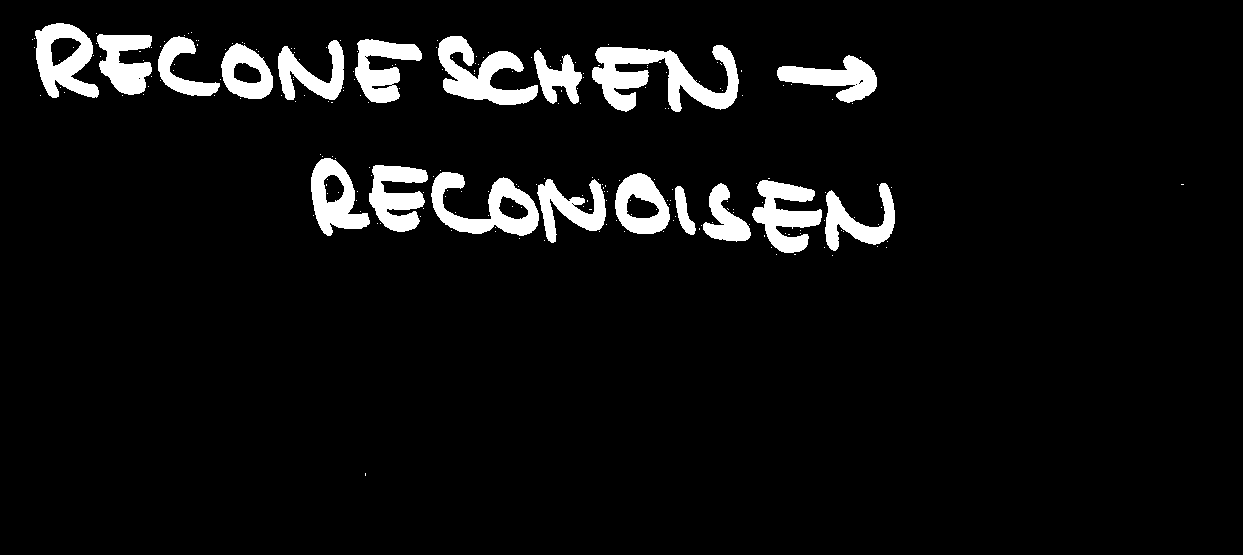 RECONESCHEN →
RECONOISEN